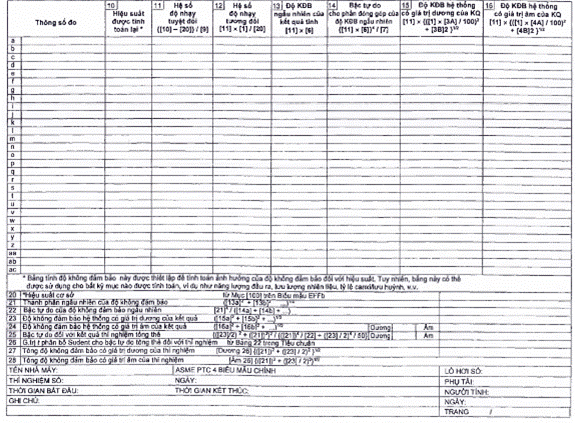 Thông số đo
10 Hiệu suất được tính toán lại *
11 Hệ số độ nhạy tuyệt đối ([10] – [20]) / [9]
12 Hệ số độ nhạy tương đối [11] × [1] / [20]
13 Độ KĐB ngẫu nhiên của kết quả tính [11] × [6]
14 Bậc tự do cho phần đóng góp của độ KĐB ngẫu nhiên ([11] × [6])⁴ / [7]
15 Độ KĐB hệ thống có giá trị dương của KQ [11] × {([1] × [3A] / 100)² + [3B]2 }¹/²
16 Độ KĐB hệ thống có giá trị âm của KQ [11] × {([1] × [4A] / 100)² + [4B]2 }¹/²
a
b
c
d
e
f
g
h
i
j
k
l
m
n
o
p
q
r
s
t
u
v
w
x
y
z
aa
ab
ac
* Bảng tính độ không đảm bảo này được thiết lập để tính toán ảnh hưởng của độ không đảm bảo đối với hiệu suất. Tuy nhiên, bảng này có thể
được sử dụng cho bất kỳ mục nào được tính toán, ví dụ như năng lượng đầu ra, lưu lượng nhiên liệu, tỷ lệ canxi/lưu huỳnh, v.v.
20 *Hiệu suất cơ sở từ Mục [100] trên Biểu mẫu EFFb
21 Thành phần ngẫu nhiên của độ không đảm bảo ([13a]² + [13b]² ...)¹/²
22 Bậc tự do của độ không đảm bảo ngẫu nhiên [21]⁴ / ([14a] + [14b] + ...)
23 Độ không đảm bảo hệ thống có giá trị dương của kết quả ([15a]² + [15b]² + ...)¹/²
24 Độ không đảm bảo hệ thống có giá trị âm của kết quả ([16a]² + [16b]² + ...)¹/² Dương Âm
25 Bậc tự do đối với kết quả thí nghiệm tổng thể {([23]/2)² + ([21])²}² / {([21])⁴ / [22] + ([23] / 2)⁴ / 50} Dương Âm
26 G.trị t phân bố Sudent cho bậc tự do tổng thể đối với thí nghiệm từ Bảng 22 trong Tiêu chuẩn
27 Tổng độ không đảm bảo có giá trị dương của thí nghiệm [Dương 26] {([21])² + ([23] / 2)²}¹/²
28 Tổng độ không đảm bảo có giá trị âm của thí nghiệm
TÊN NHÀ MÁY: ASME PTC 4 BIỂU MẪU CHÍNH LÒ HƠI SỐ:
THÍ NGHIỆM SỐ: NGÀY: PHỤ TẢI:
THỜI GIAN BẮT ĐẦU: THỜI GIAN KẾT THÚC: NGƯỜI TÍNH:
GHI CHÚ: NGÀY:
TRANG /